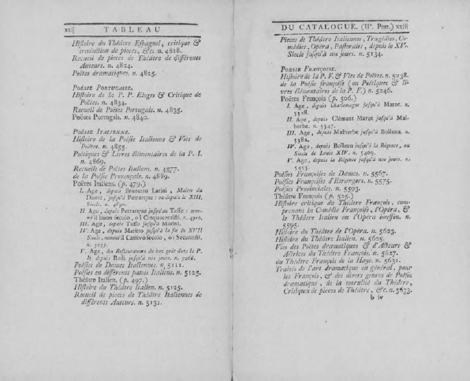 xij TABLEAU
Histoire du Théatre Espagnol, critique &
traduction de pieces, &c n. 4818.
Recueil de pieces de Théatre de différents
Auteurs. n. 4824.
Poëtes dramatiques. n. 4825.
POÉSIE PORTUGAISE.
Histoire de la P. P. Eloges & Critique de
Poëtes. n. 4834.
Recueil de Poëtes Portugais. n. 4835.
Poëtes Portugais. n. 4840.
POÉSIE ITALIENNE.
Histoire de la Poésie Italienne & Vies de
Poëtes. n. 4855.
Poétiques & Livres élémentaires de la P. I.
n. 4869.
Recueils de Poëtes Italiens. n. 4877.
de la Poésie Provençale. n. 4889.
Poëtes Italiens (p. 479.)
I. Age, depuis Brunetto Latini, Maître du
Dante, jusqu'à Petrarque; ou depuis le XIII.
Siecle.
II. Age, depuis Petrarque jusqu'au Tasse;
III. Age, depuis Tasse jusqu'à Marino.
IV. Age, depuis Marino jusqu'à la fin du XVII
Siecle,
V. Age, des Restaurateurs du bon goût dans la P.
I. depuis Redi jusqu'à nos jours.
Poésies de Dames Italiennes. n. 5111.
Poésies en différents patois Italiens. n. 5125.
Théatre Italien. (p. 497.)
Histoire du Théatre Italien. n. 5125.
Recueil de pieces de Théatre Italiennes de
différents Auteurs. n. 5131.
DU CATALOGUE. (IIe. Part.) xxiij
Pieces de Théatre Italiennes, Tragédies, Comédies,
Opéra, Pastorales, depuis le XVe.
Siecle jusqu'à nos jours. n. 5134.
POÉSIE FRANÇOISE.
Histoire de la P. F. & Vies de Poëtes. n. 5138.
de la Poésie françoise (ou Poétiques & livres
élémentaires de la P. F.) n. 5246.
Poëtes François (p. 506.)
I. Age, depuis Charlemagne jusqu'à Marot. n.
5318.
II. Age, depuis Clément Marot jusqu'à Malherbe.
n. 5347.
III. Age, depuis Malherbe jusqu'à Boileau. n.
5384.
IV. Age, depuis Boileau jusqu'à la Régence, ou
Siecle de Louis XIV. n. 5409.
V. Age, depuis la Régence jusqu'à nos jours. n.
Poésies Françoises de Dames. n. 5567.
Poésies Françoises d'Etrangers. n. 5575.
Poésies Provinciales. n. 5593.
Théatre François (p.
Histoire critique du Théatre François, comprenant
la Comédie Françoise, l'Opéra, &
le Théatre Italien
n. 5595.
Histoire du Théatre de l'Opéra. n. 5623.
Histoire du Théatre Italien. n. 5625.
Vies des Poëtes dramatiques & d'Acteurs &
Actrices du Théatre François. n. 5627.
du Théatre François de la Haye. n. 5631.
Traités de l'art dramatique en général, pour
les François, & des divers genres de Poésie
dramatique, de la moralité du Théatre,
Critiques de pieces de Théatre, &c. n. 5633.
b iv